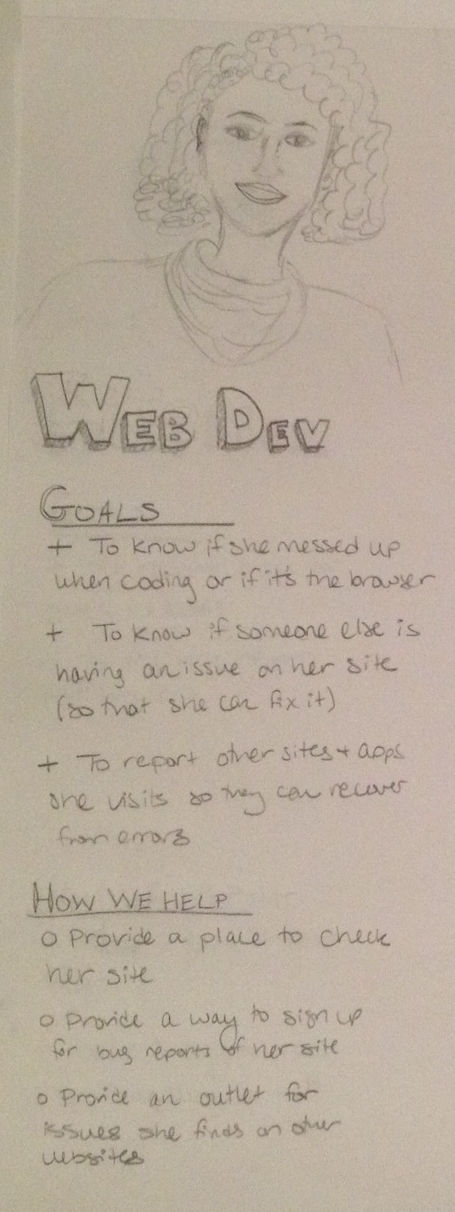 WEB DEV
GOALS
+ To know if she messed up
when coding or if it's the browser
+ To know if someone else is
having an issue on her site
(so that she can fix it)
+ To report other sites + apps
she visits so they can recover
from errors
HOW WE HELP
o Provide a place to check
her site
o Provide a way to sign up
for bug reports of her site
o Provide an outlet for
issues she finds on other
websites